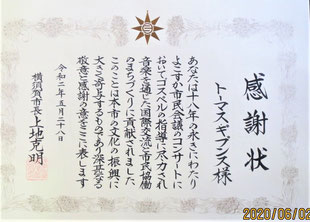 感謝状
トーマス・ギブンス様
あなたは十八年の永きにわたり
よこすか市民会議のコンサートに
おいてゴスペルの指導に尽力され
音楽を通じた国際交流と市民協働
のまちづくりに貢献されました
このことは本市の文化の振興に
大きく寄与するものであり深甚なる
敬意と感謝の意をここに表します
令和二年五月二十八日
横須賀市長 上地克明
2020/06/02